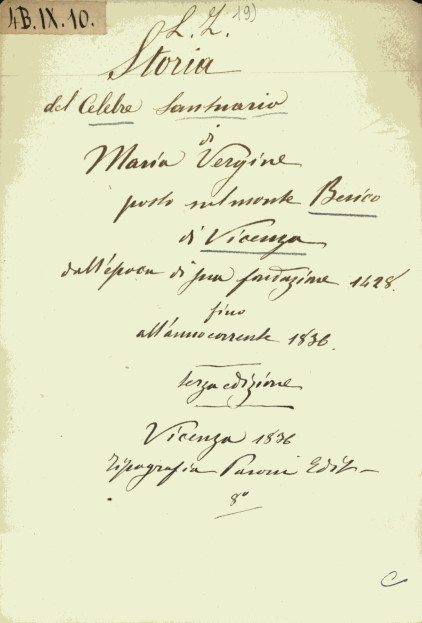 4B.IX.10.
L. Z. 19)
Storia
del Celebre Santuario
di
Maria Vergine
posto sul monte Berico
di Vicenza
dall'epoca di sua fondazione 1428.
fino
all'anno corrente 1836.
terza edizione
Vicenza 1836
Tipografia Paroni Edit
8º
C